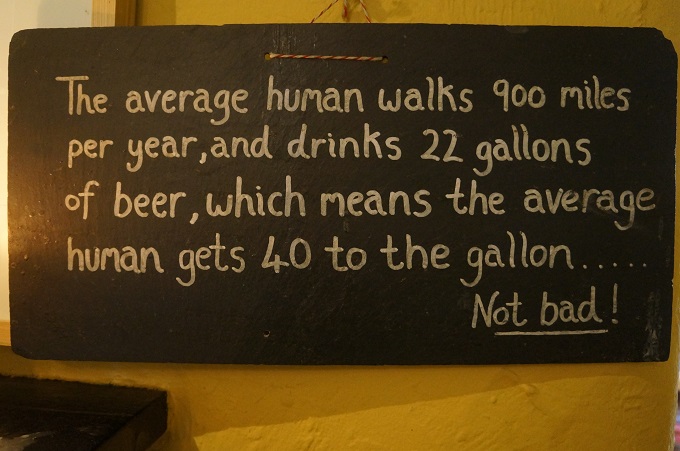 The average human walks 900 miles
per year, and drinks 22 gallons
of beer, which means the average
human gets 40 to the gallon.....
Not bad!